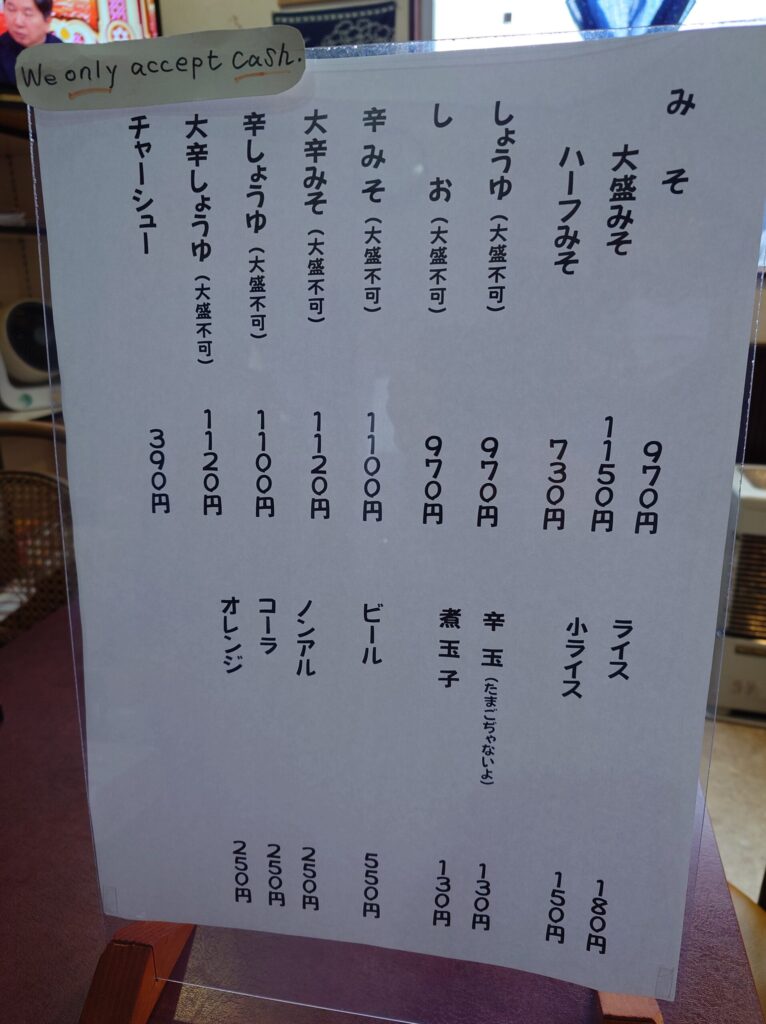 We only accept cash.
みそ 970円
大盛みそ 1150円
ハーフみそ 730円
しょうゆ（大盛不可） 970円
しお（大盛不可） 970円
辛みそ（大盛不可） 1100円
大辛みそ（大盛不可） 1120円
辛しょうゆ（大盛不可） 1100円
大辛しょうゆ（大盛不可） 1120円
チャーシュー 390円
ライス 180円
小ライス 150円
辛玉（たまごぢゃないよ） 130円
煮玉子 130円
ビール 550円
ノンアル 250円
コーラ 250円
オレンジ 250円